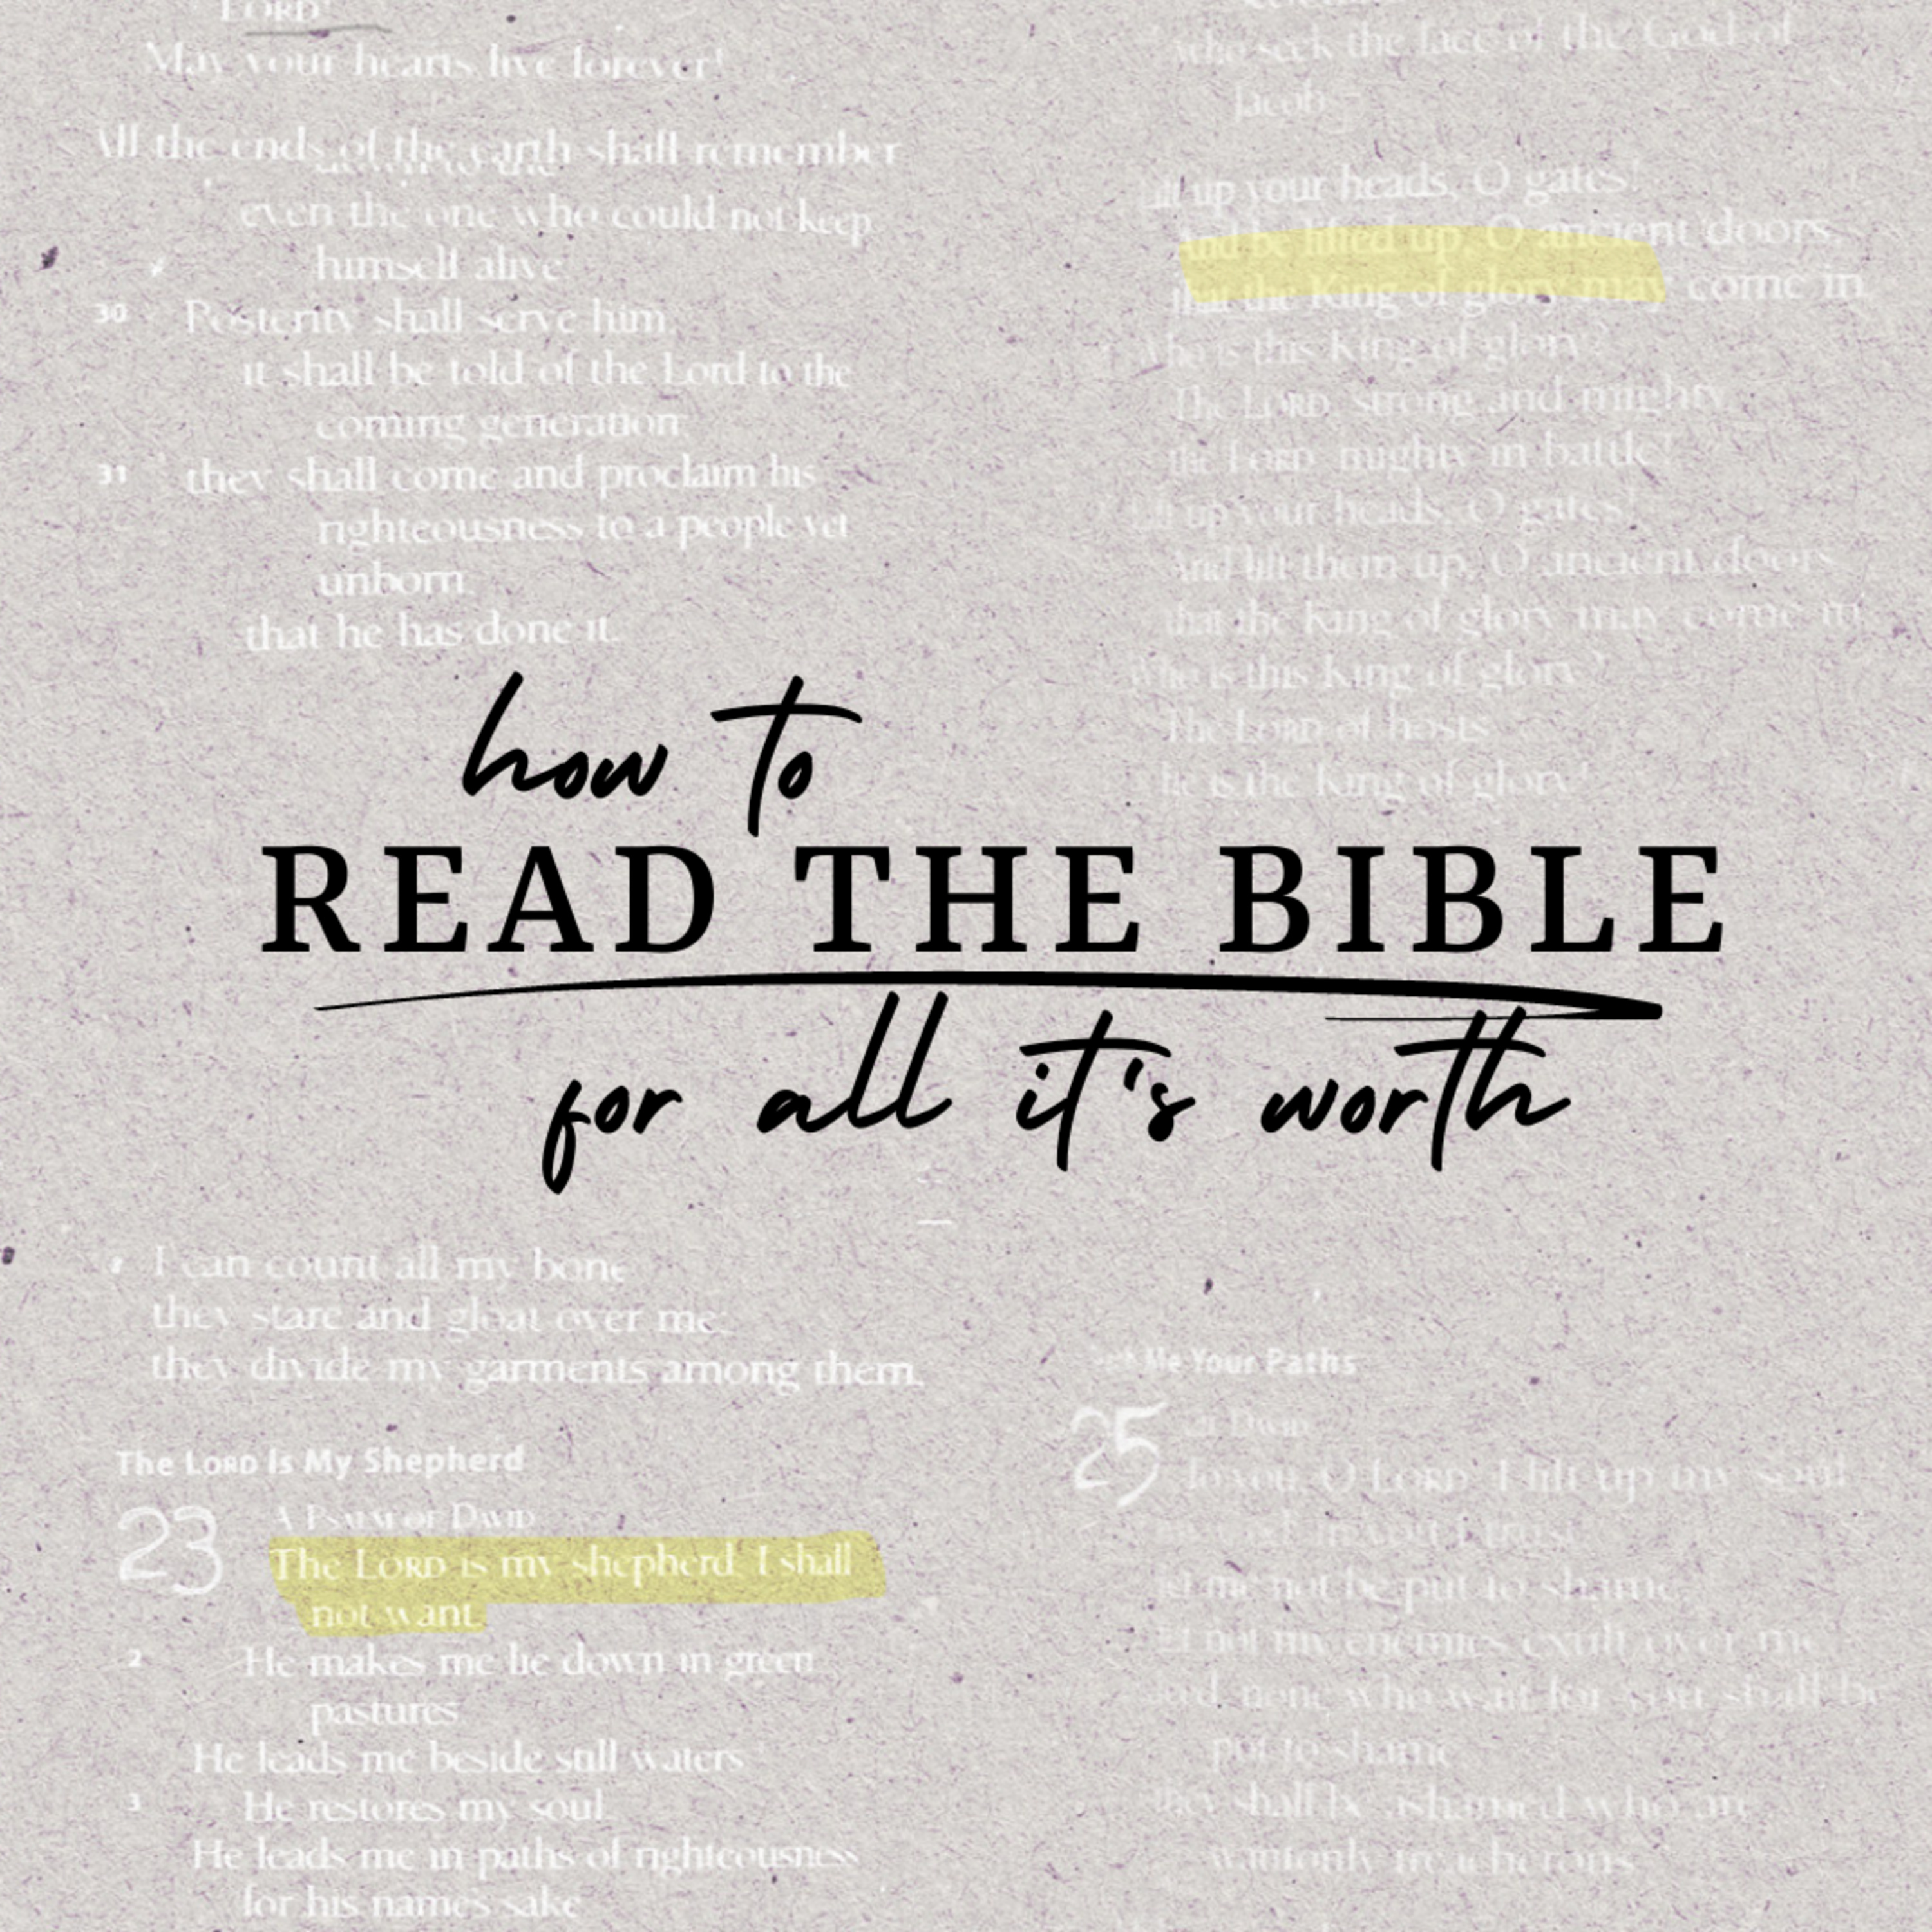 LORD!
May your hearts live forever!
All the ends of the earth shall remember
even the one who could not keep
himself alive
30 Posterity shall serve him
it shall be told of the Lord to the
coming generation
31 they shall come and proclaim his
righteousness to a people yet
unborn
that he has done it.
who seek the face of the God of
Jacob
up your heads, O gates!
and be lifted up, O ancient doors,
that the King of glory may come in
is this King of glory?
The LORD, strong and mighty
the LORD, mighty in battle!
up your heads, O gates!
and lift them up, O ancient doors
that the King of glory may come in
Who is this King of glory?
The LORD of hosts
he is the King of glory!
how to
READ THE BIBLE
for all it's worth
I can count all my bone
they stare and gloat over me;
they divide my garments among them,
The LORD Is My Shepherd
23 A PSALM OF DAVID
The LORD is my shepherd I shall
not want
2 He makes me lie down in green
pastures
He leads me beside still waters
3 He restores my soul
He leads me in paths of righteousness
for his name's sake
Me Your Paths
25 DAVID
To you, O LORD, I lift up my soul
I trust
let me not be put to shame
let not my enemies exult over me
none who wait for you shall be
put to shame
they shall be ashamed who are
wantonly treacherous